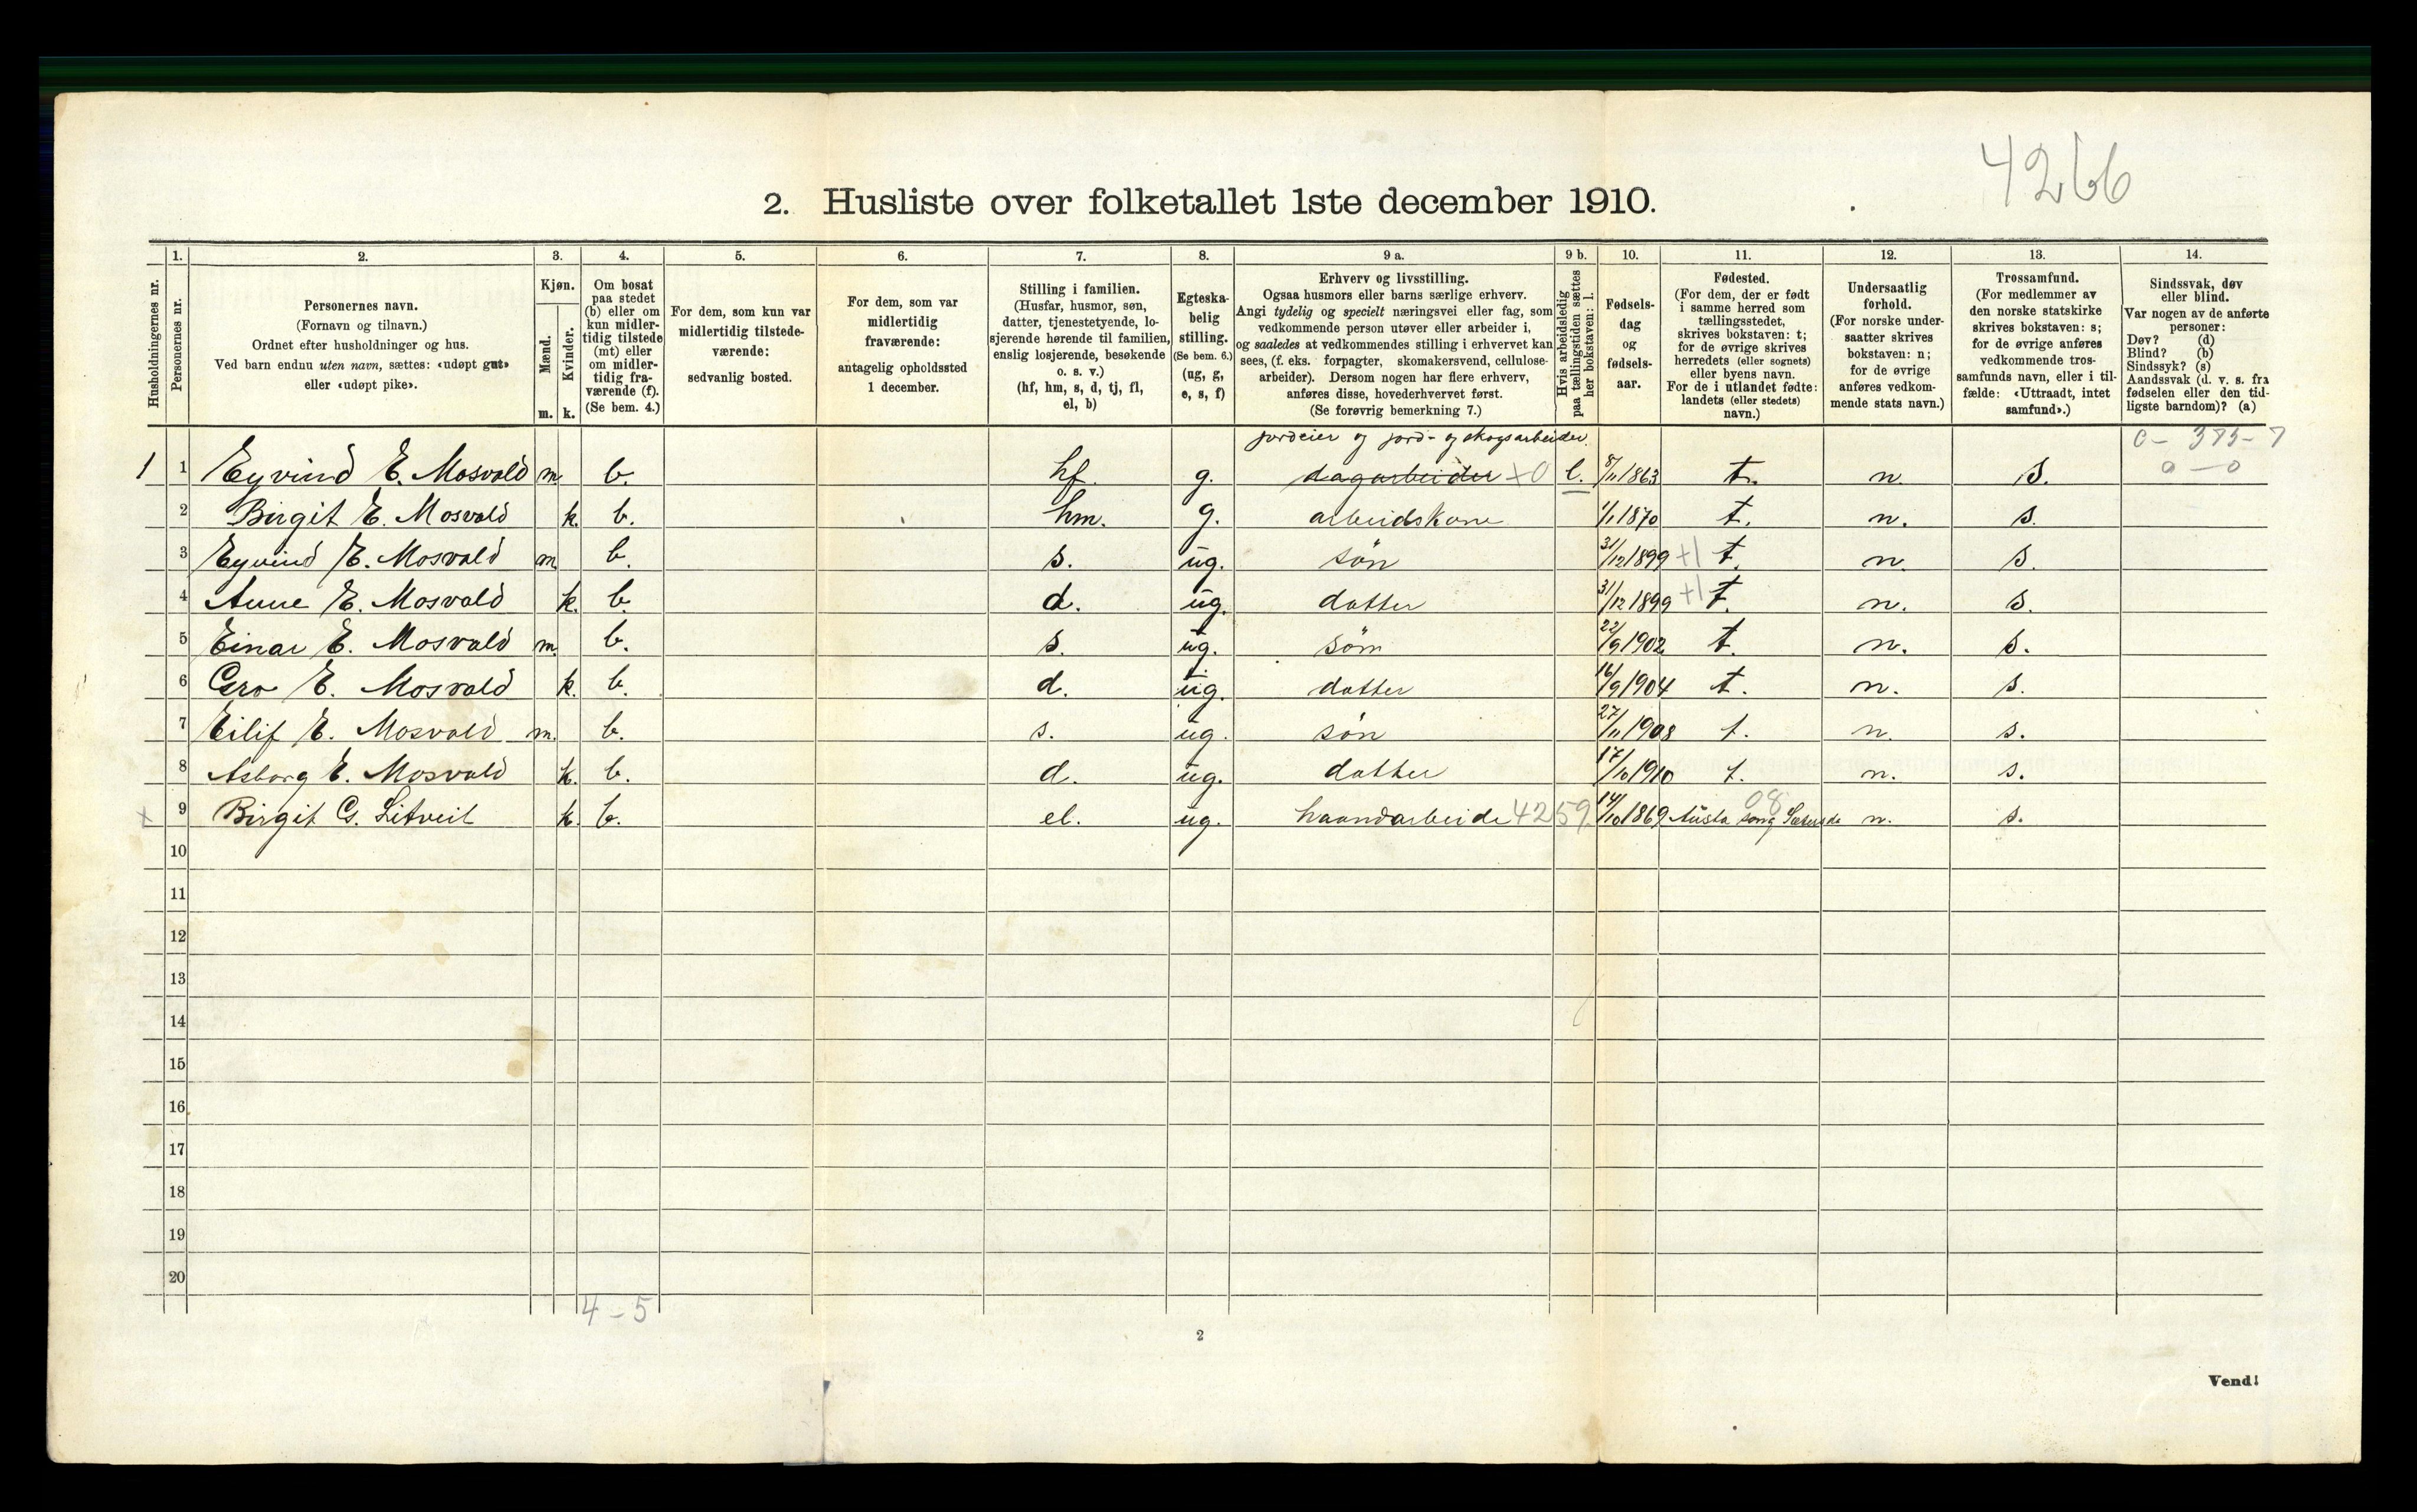 4266
2. Husliste over folketallet 1ste december 1910.
Husholdningernes nr.
1.
Personernes nr.
2.
Personernes navn.
(Fornavn og tilnavn.)
Ordnet efter husholdninger og hus.
Ved barn endnu uten navn, sættes: «udøpt gut»
eller «udøpt pike».
3.
Kjøn.
Mænd.
Kvinder.
m. k.
4.
Om bosat
paa stedet
(b) eller om
kun midler-
tidig tilstede
(mt) eller
om midler-
tidig fra-
værende (f).
(Se bem. 4.)
5.
For dem, som kun var
midlertidig tilstede-
værende:
sedvanlig bosted.
6.
For dem, som var
midlertidig
fraværende:
antagelig opholdssted
1 december.
7.
Stilling i familien.
(Husfar, husmor, søn,
datter, tjenestetyende, lo-
sjerende hørende til familien,
enslig losjerende, besøkende
o. s. v.)
(hf, hm, s, d, tj, fl,
el, b)
8.
Egteska-
belig
stilling.
(Se bem. 6.)
(ug, g,
e, s, f)
9 a.
Erhverv og livsstilling.
Ogsaa husmors eller barns særlige erhverv.
Angi tydelig og specielt næringsvei eller fag, som
vedkommende person utøver eller arbeider i,
og saaledes at vedkommendes stilling i erhvervet kan
sees, (f. eks. forpagter, skomakersvend, cellulose-
arbeider). Dersom nogen har flere erhverv,
anføres disse, hovederhvervet først.
(Se forøvrig bemerkning 7.)
9 b.
Hvis arbeidsledig
paa tællingstiden sættes
her bokstaven: l.
10.
Fødsels-
dag
og
fødsels-
aar.
11.
Fødested.
(For dem, der er født
i samme herred som
tællingsstedet,
skrives bokstaven: t;
for de øvrige skrives
herredets (eller sognets)
eller byens navn.
For de i utlandet fødte:
landets (eller stedets)
navn.)
12.
Undersaatlig
forhold.
(For norske under-
saatter skrives
bokstaven: n;
for de øvrige
anføres vedkom-
mende stats navn.)
13.
Trossamfund.
(For medlemmer av
den norske statskirke
skrives bokstaven: s;
for de øvrige anføres
vedkommende tros-
samfunds navn, eller i til-
fælde: «Uttraadt, intet
samfund».)
14.
Sindssvak, døv
eller blind.
Var nogen av de anførte
personer:
Døv? (d)
Blind? (b)
Sindssyk? (s)
Aandssvak (d. v. s. fra
fødselen eller den tid-
ligste barndom)? (a)
jordeier og jord- og skogsarbeider. 0 - 375 - 7
1 1 Eyvind E. Mosvald m. b. hf. g. dagarbeider x0 l. 8/11 1863 t. n. s. 0 - 0
2 Birgit E. Mosvald k. b. hm. g. arbeidskone 1/1 1870 t. n. s.
3 Eyvind E. Mosvald m. b. s. ug. søn 31/12 1899 +1 t. n. s.
4 Anne E. Mosvald k. b. d. ug. datter 31/12 1899 +1 t. n. s.
5 Einar E. Mosvald m. b. s. ug. søn 22/9 1902 t. n. s.
6 Gro E. Mosvald k. b. d. ug. datter 16/9 1904 t. n. s.
7 Eilif E. Mosvald m. b. s. ug. søn 27/11 1908 t. n. s.
8 Asborg E. Mosvald k. b. d. ug. datter 17/10 1910 t. n. s.
x 9 Birgit G. Litveit k. b. el. ug. haandarbeide 4259 14/10 1869 08 n. s.
10
11
12
13
14
15
16
17
18
19
20
4 - 5
2
Vend!